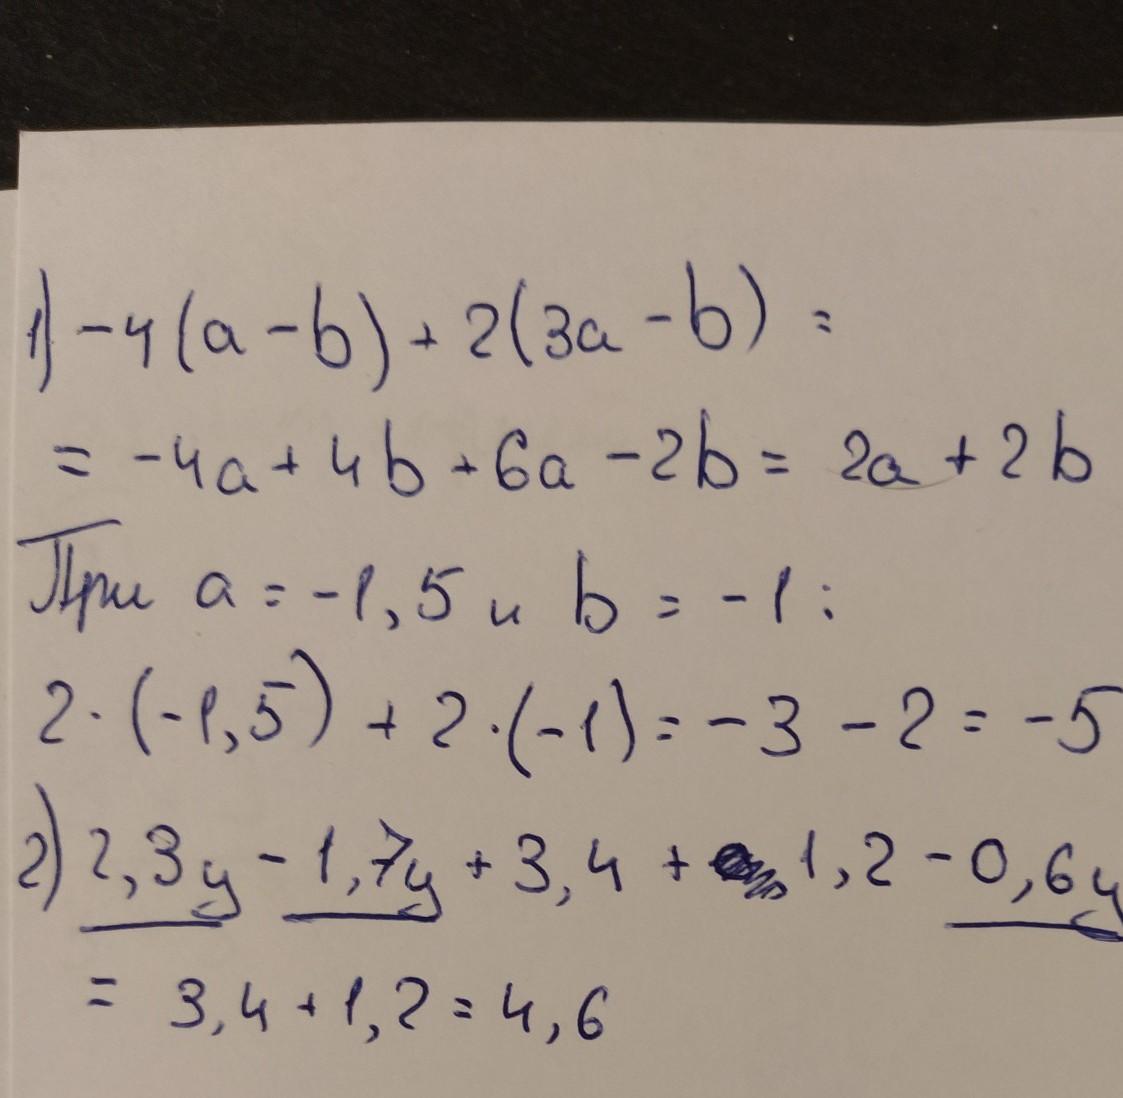 1) -4(a-b)+2(3a-b)=
= -4a+4b+6a-2b= 2a+2b
При a=-1,5 и b=-1:
2·(-1,5)+2·(-1)=-3-2=-5
2) 2,3y-1,7y+3,4+1,2-0,6y
= 3,4+1,2=4,6